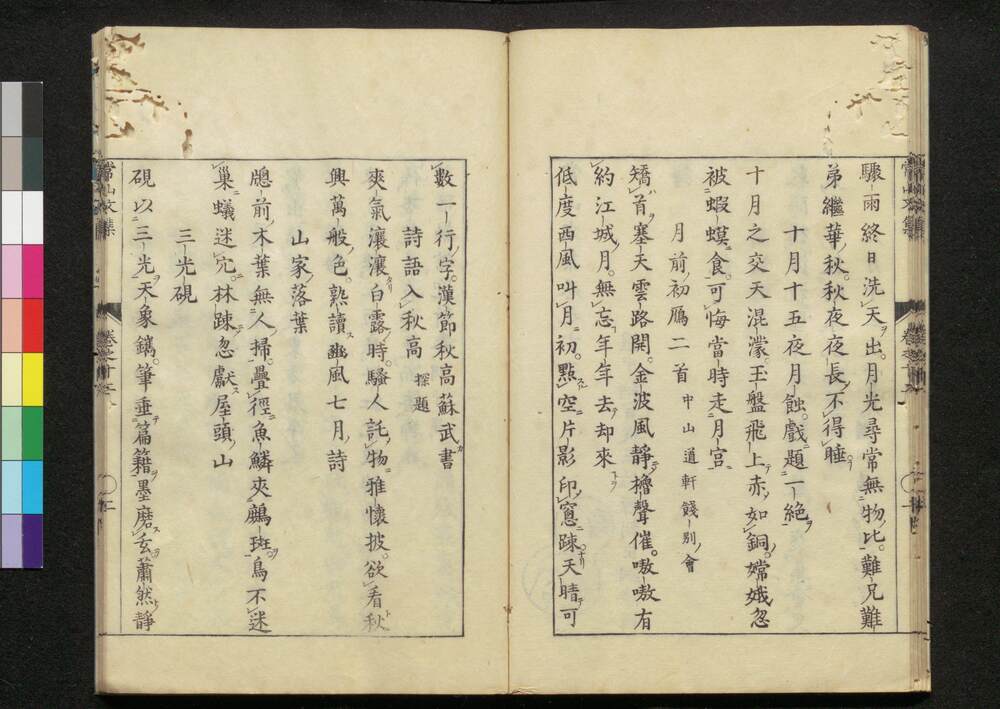 驟雨終日洗天出。月光尋常無物比。難兄難
弟繼華秋。秋夜夜長不得睡
十月十五夜月蝕。戲題一絕
十月之交天混濛。玉盤飛上赤如銅。嫦娥忽
被蝦蟆食。可悔當時走月宮
月前初鴈二首 中山道軒餞別會
矯首塞天雲路開。金波風靜櫓聲催。嗷嗷有
約江城月。無忘年年去却來
低度西風叫月初。點空片影印窓踈。天晴可
數一行字。漢節秋高蘇武書
詩語入秋高 探題
爽氣瀼瀼白露時。騷人託物雅懷披。欲看秋
興萬般色。熟讀豳風七月詩
山家落葉
牕前木葉無人掃。疊徑魚鱗夾鷓斑。鳥不迷
巢蟻迷穴。林踈忽獻屋頭山
三光硯
硯以三光天象鐫。筆垂篇籍墨磨玄。蕭然靜
常山文集
卷之十五
常山文集